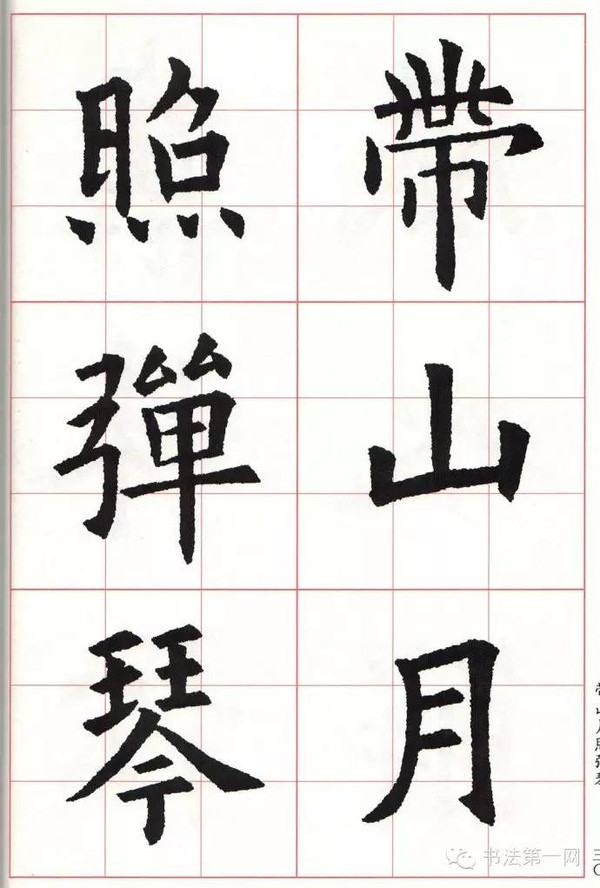 帶山月
照彈琴
书法第一网
三〇